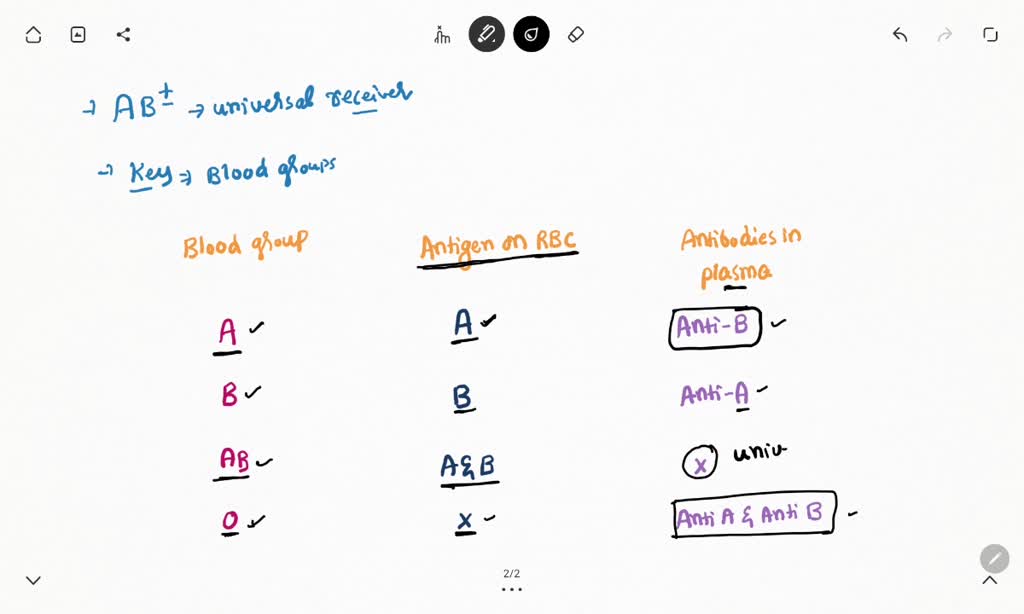 → AB+ → universal receiver
→ Key ⇒ Blood groups
Blood group Antigen on RBC Antibodies in plasma
A ✓ A ✓ Anti-B ✓
B ✓ B Anti-A ✓
AB ✓ A & B x univ
O ✓ x ✓ Anti A & Anti B
2/2